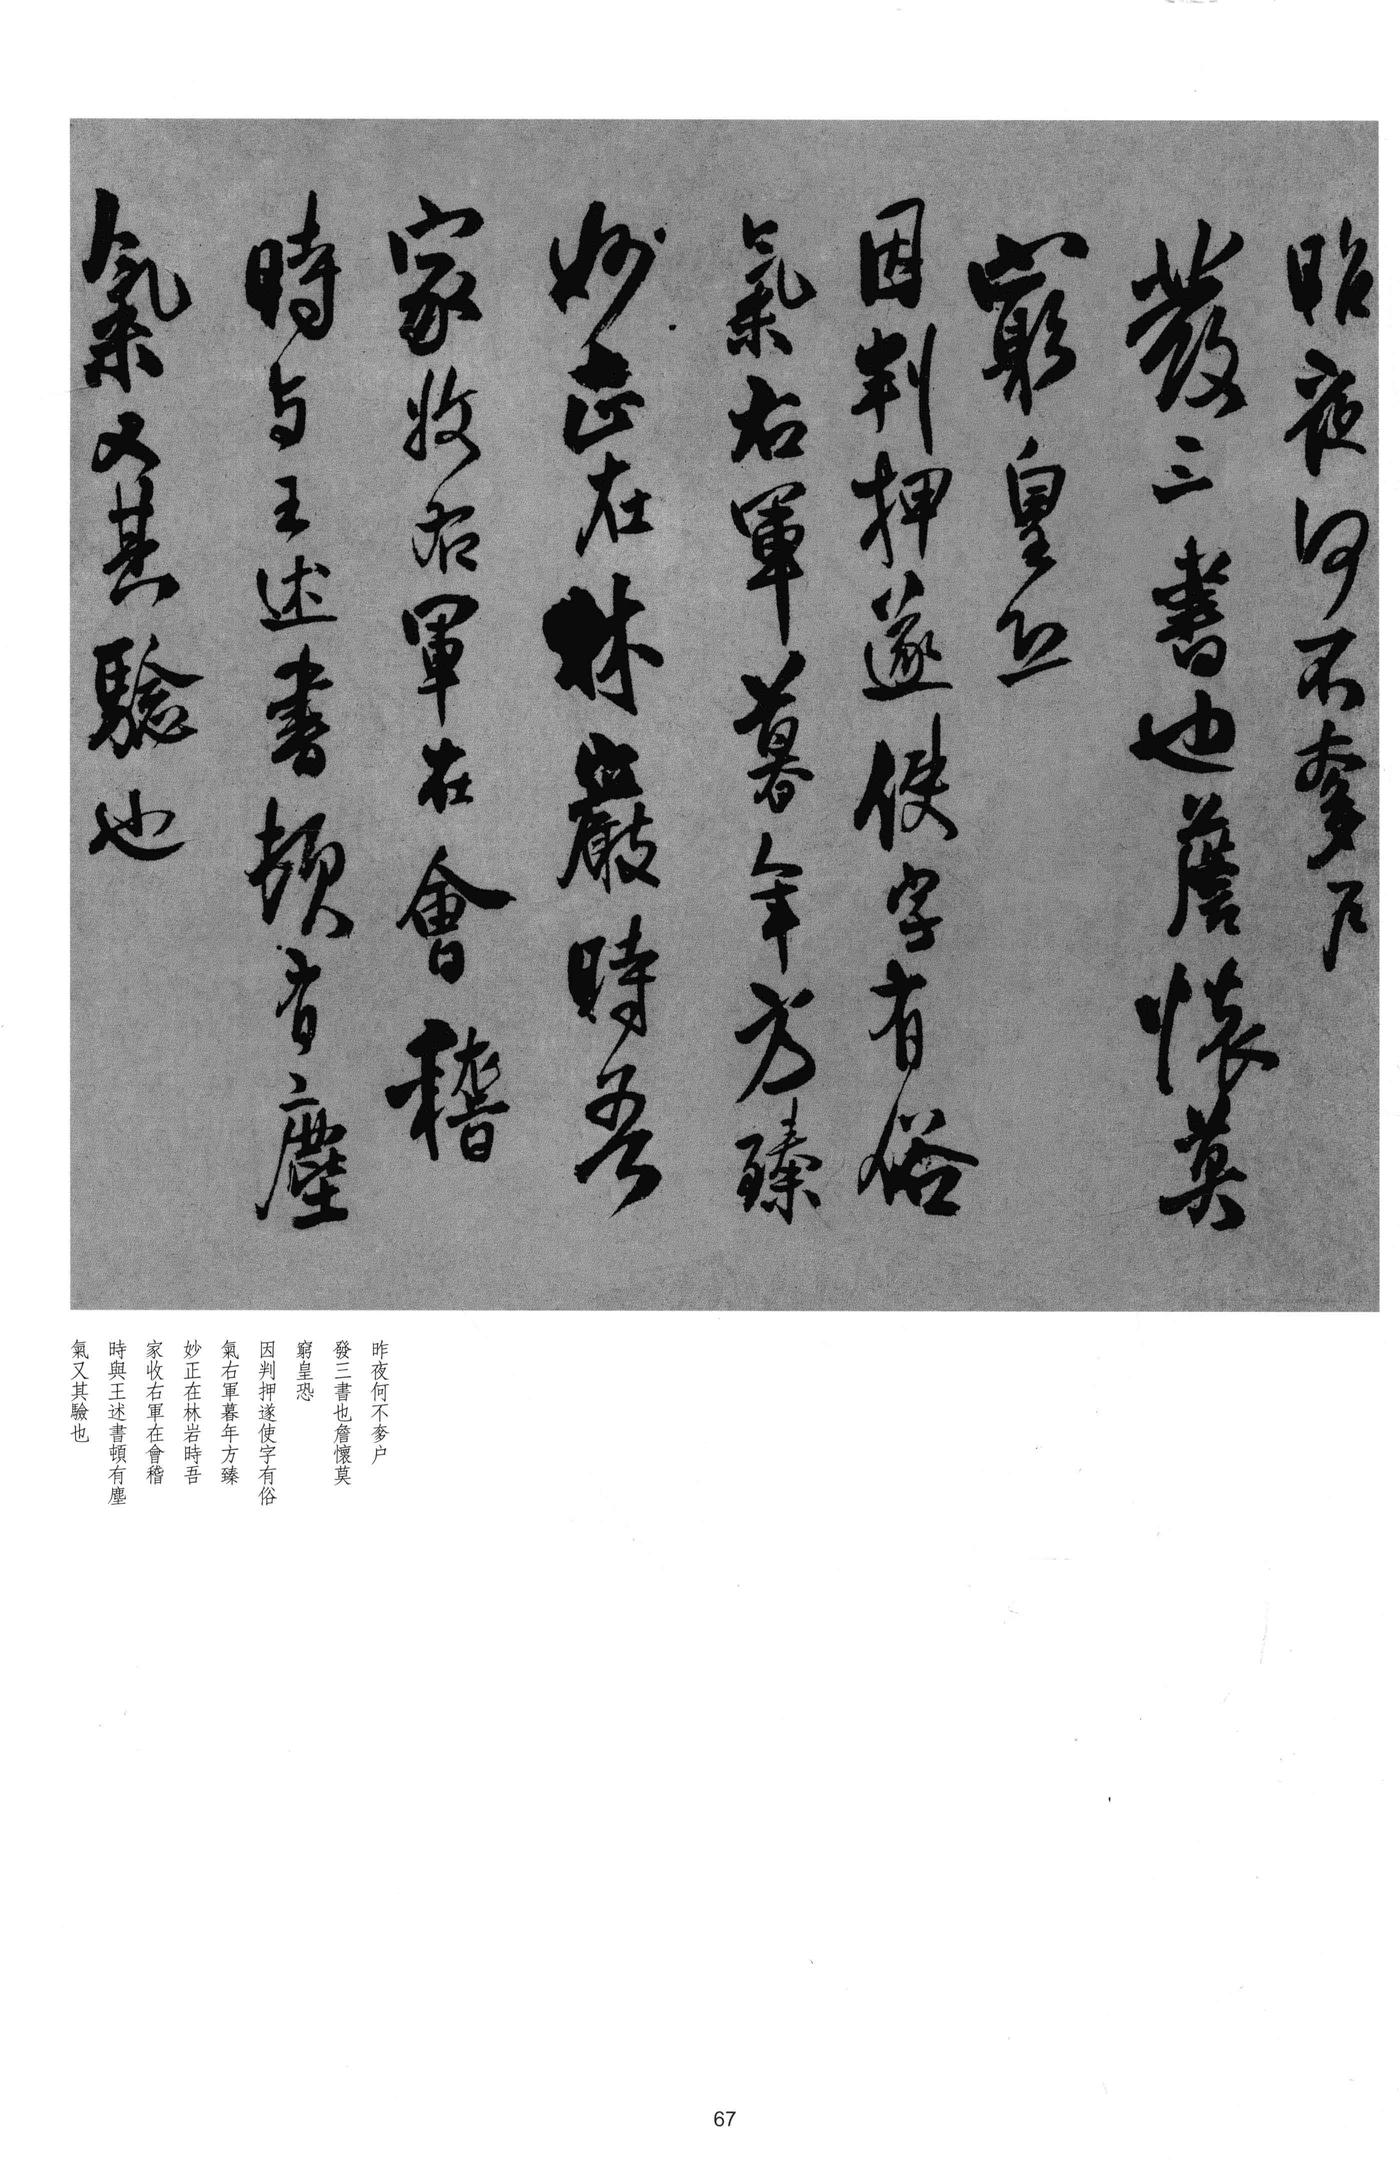 昨夜何不奓户
發三書也詹懷莫
窮皇恐
因判押遂使字有俗
氣右軍暮年方臻
妙正在林巖時吾
家收右軍在會稽
時与王述書頓有塵
氣又其驗也
昨夜何不奓户
發三書也詹懷莫
窮皇恐
因判押遂使字有俗
氣右軍暮年方臻
妙正在林岩時吾
家收右軍在會稽
時與王述書頓有塵
氣又其驗也
67